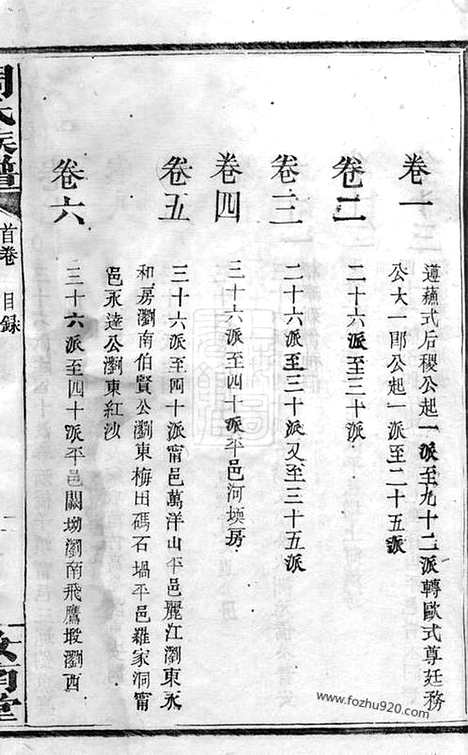 卷一
遵蘇式后稷公起一派至九十二派轉歐式尊廷務
公大一郎公起一派至二十五派
卷二
二十六派至三十派
卷三
二十六派至三十派又至三十五派
卷四
三十六派至四十派平邑河堧房
卷五
三十六派至四十派甯邑萬洋山平邑麗江瀏東永
和房瀏南伯賢公瀏東梅田碼石塥平邑羅家洞甯
邑永達公瀏東紅沙
卷六
三十六派至四十派平邑闕坳瀏南飛鷹塅瀏西
周氏族譜
首卷 目錄
www.fozhu920.com